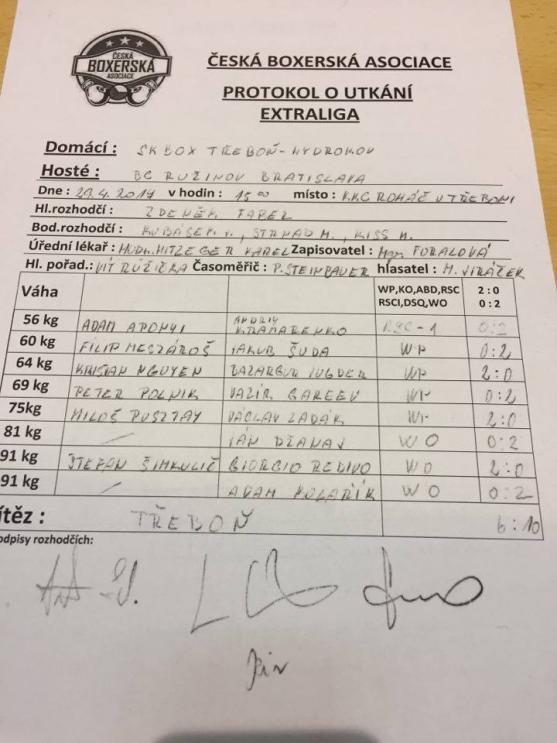 ČESKÁ
BOXERSKÁ
ASOCIACE
ČESKÁ BOXERSKÁ ASOCIACE
PROTOKOL O UTKÁNÍ
EXTRALIGA
Domácí : SK BOX TŘEBOŇ-HYDROKOV
Hosté : BC RUŽINOV BRATISLAVA
Dne : 29.4.2017 v hodin : 15 00 místo : K.K.C ROHÁČ V TŘEBONI
Hl.rozhodčí : ZDENĚK
Bod.rozhodčí : STRNAD M., KISS M.
Úřední lékař : MUDr. KAREL Zapisovatel :
Hl. pořad.: VÍT RŮŽIČKA Časoměřič : P. STEINBAUER hlasatel : M. JIRÁČEK
Váha WP,KO,ABD,RSC 2 : 0
RSCI,DSQ,WO 0 : 2
56 kg ADAM ANDRIY KRAMARENKO RSC-1 0:2
60 kg FILIP MESZÁROŠ JAKUB ŠUDA WP 0:2
64 kg KRISTIAN NGUYEN WP 2:0
69 kg PETER POLNIK VAZIR GAREEV WP 0:2
75kg MILOŠ PUSZTAY VÁCLAV ZADÁK WP 2:0
81 kg / JÁN DŽANAJ WO 0:2
91 kg ŠTEFAN ŠIMKULIČ GIORGIO REDIVO WO 2:0
91 kg / ADAM KOLAŘÍK WO 0:2
ítěz : TŘEBOŇ 6:10
odpisy rozhodčích: